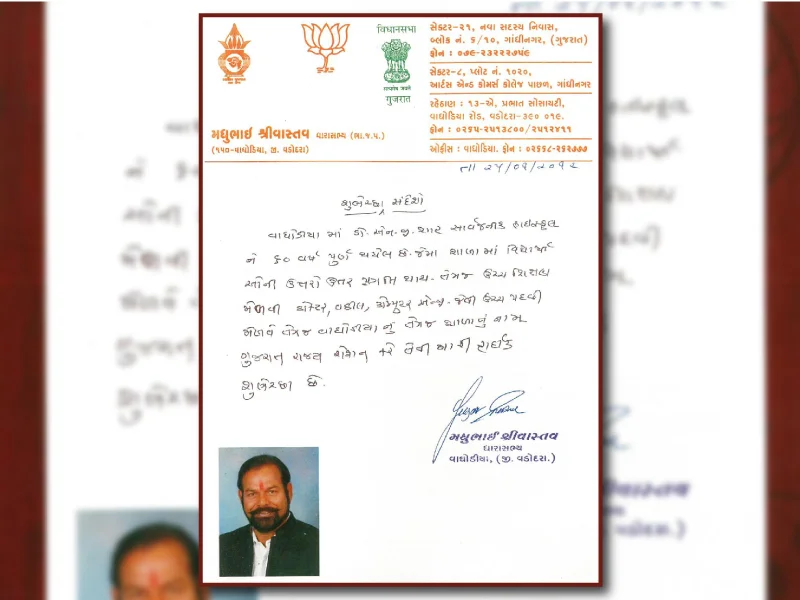 વિધાનસભા
सत्यमेव जयते
ગુજરાત
સેક્ટર-૨૧, નવા સદસ્ય નિવાસ,
બ્લોક નં. ૬/૧૦, ગાંધીનગર, (ગુજરાત)
ફોન : ૦૭૯-૨૩૨૨૨૭૫૯
સેક્ટર-૮, પ્લોટ નં. ૧૦૨૦,
આર્ટસ એન્ડ કોમર્સ કોલેજ પાછળ, ગાંધીનગર
રહેઠાણ : ૧૩-એ, પ્રભાત સોસાયટી,
વાઘોડિયા રોડ, વડોદરા-૩૯૦ ૦૧૯.
ફોન : ૦૨૬૫-૨૫૧૩૮૦૦/૨૫૧૨૪૧૧
ઓફીસ : વાઘોડિયા. ફોન : ૦૨૬૬૮-૨૬૨૭૭૭
મધુભાઈ શ્રીવાસ્તવ ધારાસભ્ય (ભા.જ.પ.)
(૧૫૦-વાઘોડિયા, જી. વડોદરા)
શુભેચ્છા સંદેશો
વાઘોડીયા માં ડી. એન. જી. શાહ સાર્વજનીક હાઇસ્કૂલ
ને ૬૦ વર્ષ પુર્ણ થયેલ છે. જેમાં શાળામાં
ઓની ઉત્તરો ઉત્તર પ્રગતિ થાય. તેમજ ઉચ્ચ શિક્ષણ
મેળવી ડોક્ટર, વકીલ, કોમ્પ્યુટર જેવી ઉચ્ચ પદવી
મેળવે તેમજ વાઘોડીયા નું તેમજ શાળાનું નામ
ગુજરાત રાજ્ય રોશન કરે તેવી મારી હાર્દીક
શુભેચ્છા છે.
મધુભાઈ શ્રીવાસ્તવ
ધારાસભ્ય
વાઘોડીયા, (જી. વડોદરા.)